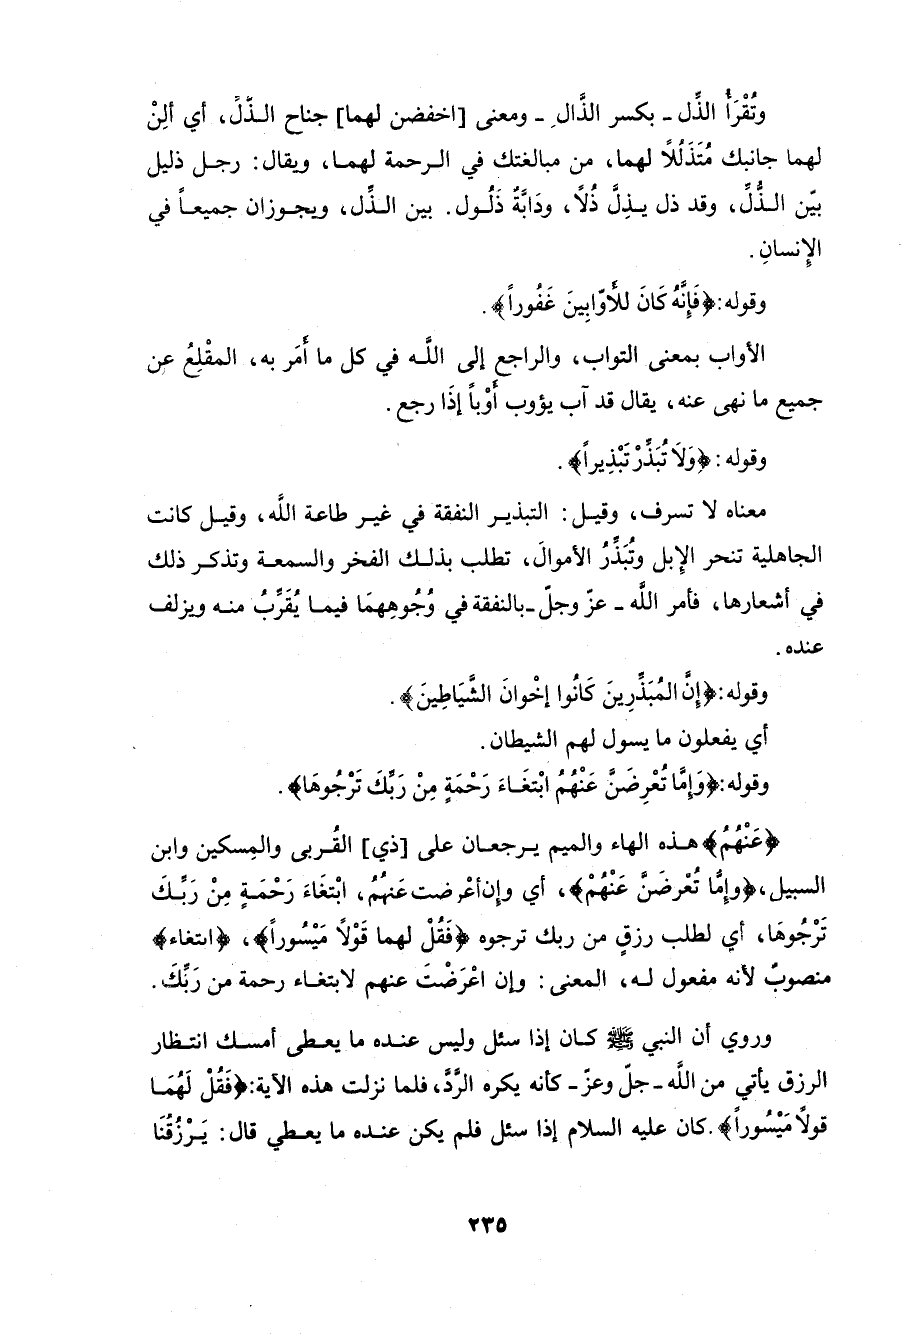 وتُقْرَأُ الذِّل ـ بكسر الذَّالِ ـ ومعنى [اخفضن لهما] جناح الـذُّلِّ، أي ألِنْ
لهما جانبك مُتَذَلِّلاً لهما، من مبالغتك في الـرحمة لهمـا، ويقال: رجـل ذليل
بيّن الـذُّلِّ، وقد ذل يـذِلُّ ذُلًّا، ودَابَّةٌ ذَلُـول. بين الـذِّل، ويجـوزان جميعـاً في
الإِنسانِ.
وقوله: ﴿فَإِنَّهُ كَانَ للأَوّابِينَ غَفُوراً﴾.
الأواب بمعنى التواب، والراجع إلى اللَّـه في كل ما أَمَر به، المقْلِعُ عن
جميع ما نهى عنه، يقال قد آب يؤوب أَوْباً إذَا رجع.
وقوله: ﴿وَلَا تُبَذِّرْ تَبْذِيراً﴾.
معناه لا تسرف، وقيـل: التبذيـر النفقة في غيـر طاعة اللَّه، وقيـل كانت
الجاهلية تنحر الإِبل وتُبَذِّرُ الأموالَ، تطلب بذلـك الفخر والسمعـة وتذكـر ذلك
في أشعارها، فأمر اللَّه ـ عزّ وجلّ ـ بالنفقة في وُجُوهِهمَا فيمـا يُقَرِّبُ منـه ويزلف
عنده.
وقوله: ﴿إِنَّ المُبَذِّرِينَ كَانُوا إخْوانَ الشَّيَاطِينَ﴾.
أي يفعلون ما يسول لهم الشيطان.
وقوله: ﴿وَإِمَّا تُعْرِضَنَّ عَنْهُمُ ابْتغَاءَ رَحْمَةٍ مِنْ رَبِّكَ تَرْجُوهَا﴾.
﴿عَنْهُمُ﴾ هـذه الهاء والميم يـرجعـان على [ذي] القُـربى والمِسكين وابن
السبيل، ﴿وإمَّا تُعْرضَنَّ عَنْهُمْ﴾، أي وإن أعْرضت عَنهُم، ابْتغَاءَ رَحْمَـةٍ مِنْ رَبِّـكَ
تَرْجُوهَا، أي لطلب رزقٍ من ربك ترجوه ﴿فَقُلْ لهما قَوْلاً مَيْسُوراً﴾، ﴿ابتغاء﴾
منصوبٌ لأنه مفعول لـه، المعنى: وإن اعْرَضْتَ عنهم لابتغـاء رحمة من رَبِّكَ.
وروي أن النبي ﷺ كـان إذا سئل وليس عنـده ما يعـطى أمسـك انتـظار
الرزق يأتي من اللَّه ـ جلّ وعزّ ـ كأنه يكره الرَّدَّ، فلما نزلت هذه الآية: ﴿فَقُلْ لَهُمَـا
قولاً مَيْسُوراً﴾. كان عليه السلام إذا سئل فلم يكن عنده ما يعـطي قال: يَـرْزُقُنَا
٢٣٥